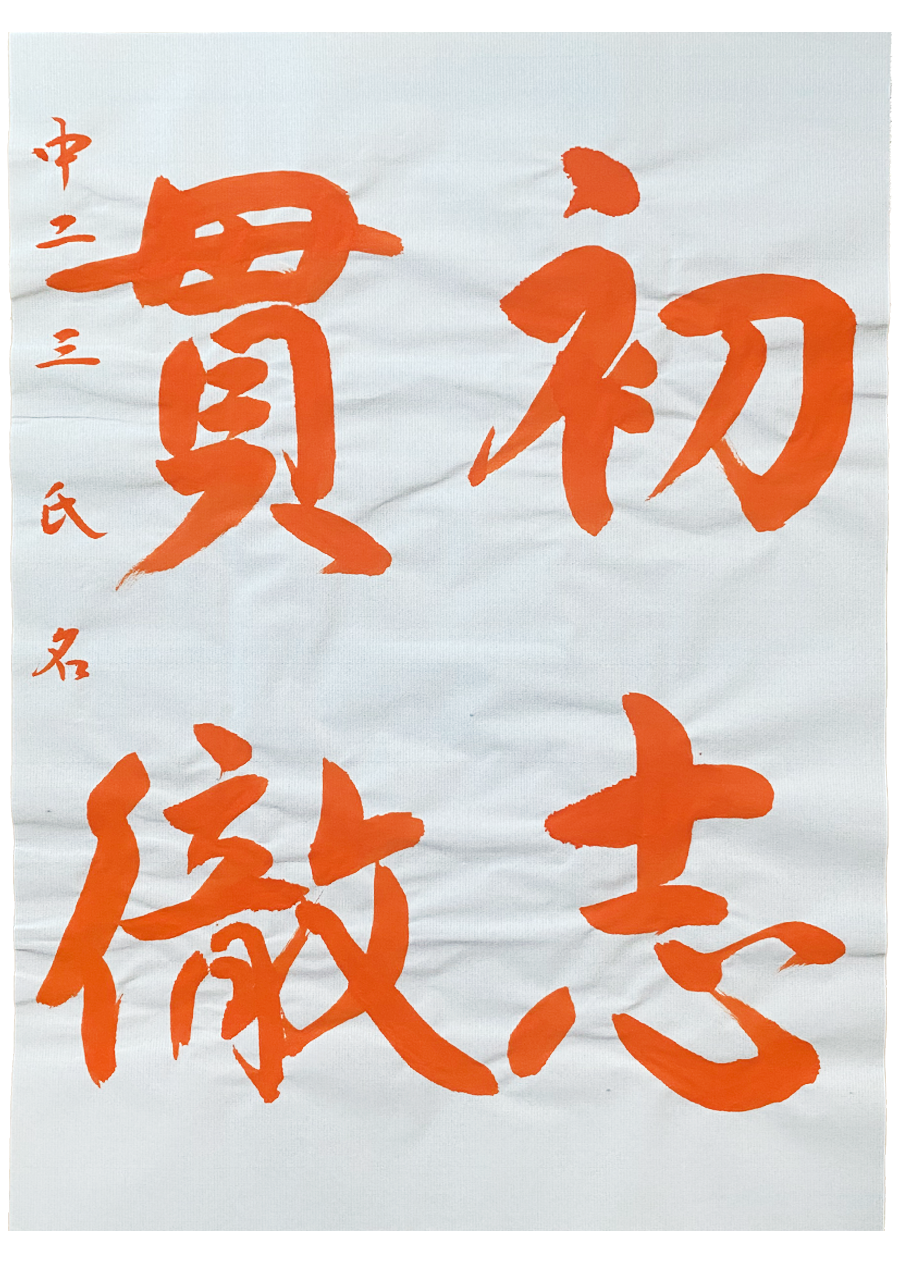 初志
貫徹
中二三氏名